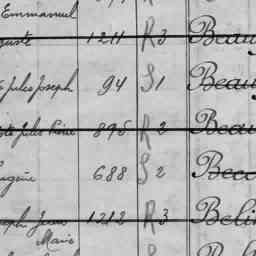 Emmanuel
guste 1211 R3 Beau
Jules Joseph 94 S1 Beau
Jules Pierre 895 R2 Beau
Eugène 688 S2 Bec
Joseph Jean 1212 R3 Beli
Marie